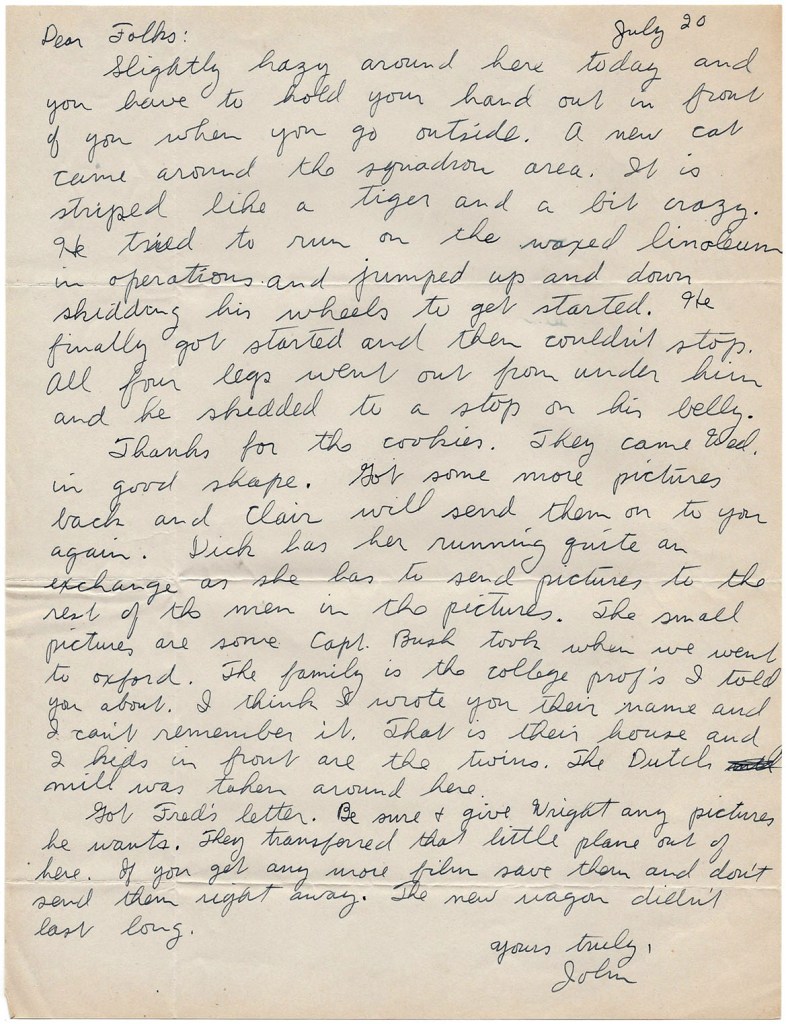 Dear Folks: July 20
Slightly hazy around here today and
you have to hold your hand out in front
of you when you go outside. A new cat
came around the squadron area. It is
striped like a tiger and a bit crazy.
He tried to run on the waxed linoleum
in operations and jumped up and down
skidding his wheels to get started. He
finally got started and then couldn't stop.
All four legs went out from under him
and he skidded to a stop on his belly.
Thanks for the cookies. They came Wed.
in good shape. Got some more pictures
back and Clair will send them on to you
again. Dick has her running quite an
exchange as she has to send pictures to the
rest of the men in the pictures. The small
pictures are some Capt. Bush took when we went
to oxford. The family is the college prof's I told
you about. I think I wrote you their name and
I can't remember it. That is their house and
2 kids in front are the twins. The Dutch
mill was taken around here.
Got Fred's letter. Be sure & give Wright any pictures
he wants. They transferred that little plane out of
here. If you get any more film save them and don't
send them right away. The new wagon didn't
last long.
Yours truly,
John